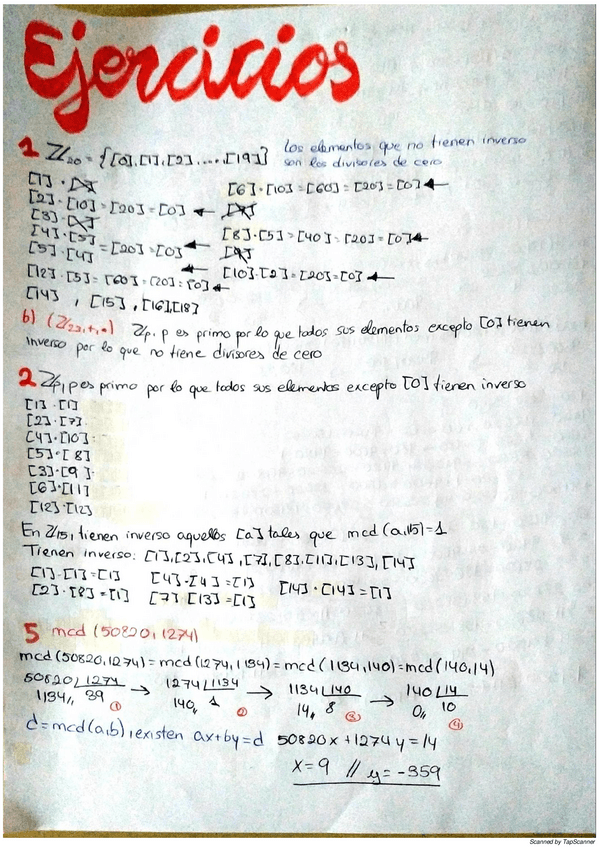 Ejercicios
1 ℤ20 = {[0],[1],[2],....,[19]} los elementos que no tienen inverso
son los divisores de cero
[1]·
[2]·[10]=[20]=[0]
[3]·
[4]·[5]
[5]·[4] =[20]=[0]
[12]·[5]=[60]=[20]=[0]
[14] , [15], [16],[18]
[6]·[10]=[60]=[20]=[0]
[7]
[8]·[5]=[40]=[20]=[0]
[9]
[10]·[2]=[20]=[0]
b) (ℤ23,+,•) ℤp, p es primo por lo que todos sus elementos excepto [0] tienen
inverso por lo que no tiene divisores de cero
2 ℤp, p es primo por lo que todos sus elementos excepto [0] tienen inverso
[1]·[1]
[2]·[7]
[4]·[10]
[5]·[8]
[3]·[9]
[6]·[11]
[12]·[12]
En ℤ15, tienen inverso aquellos [a] tales que mcd(a,15)=1
Tienen inverso: [1],[2],[4],[7],[8],[11],[13],[14]
[1]·[1]=[1] [4]·[4]=[1] [14]·[14]=[1]
[2]·[8]=[1] [7]·[13]=[1]
5 mcd (50820,1274)
mcd(50820,1274)=mcd(1274,1134)=mcd(1134,140)=mcd(140,14)
50820 |1274 → 1274 |1134 → 1134 |140 → 140 |14
1134,, 39 ① 140,, 1 ② 14,, 8 ③ 0,, 10 ④
d=mcd(a,b), existen ax+by=d 50820x+1274y=14
x=9 // y=-359
Scanned by TapScanner